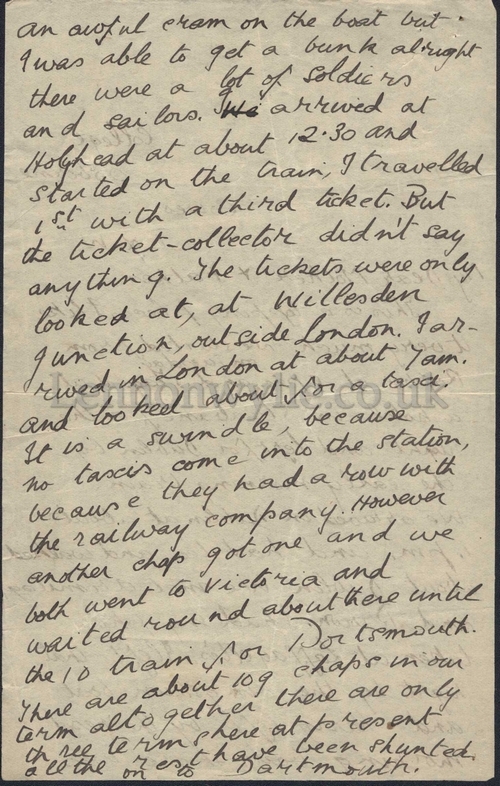 an awful cram on the boat but
I was able to get a bunk alright
there were a lot of soldiers
and sailors. We arrived at
Holyhead at about 12.30 and
started on the train, I travelled
1st with a third ticket. But
the ticket-collector didn't say
anything. The tickets were only
looked at, at Willesden
Junction, outside London. I ar-
rived in London at about 7am.
and looked about for a taxi.
It is a swindle, because
no taxis come into the station,
because they had a row with
the railway company. However
another chap got one and we
both went to Victoria and
waited round about there until
the 10 train for Portsmouth.
There are about 109 chaps in our
term altogether there are only
three terms here at present
all the rest have been shunted
on to Dartmouth.
Lennonwylie.co.uk